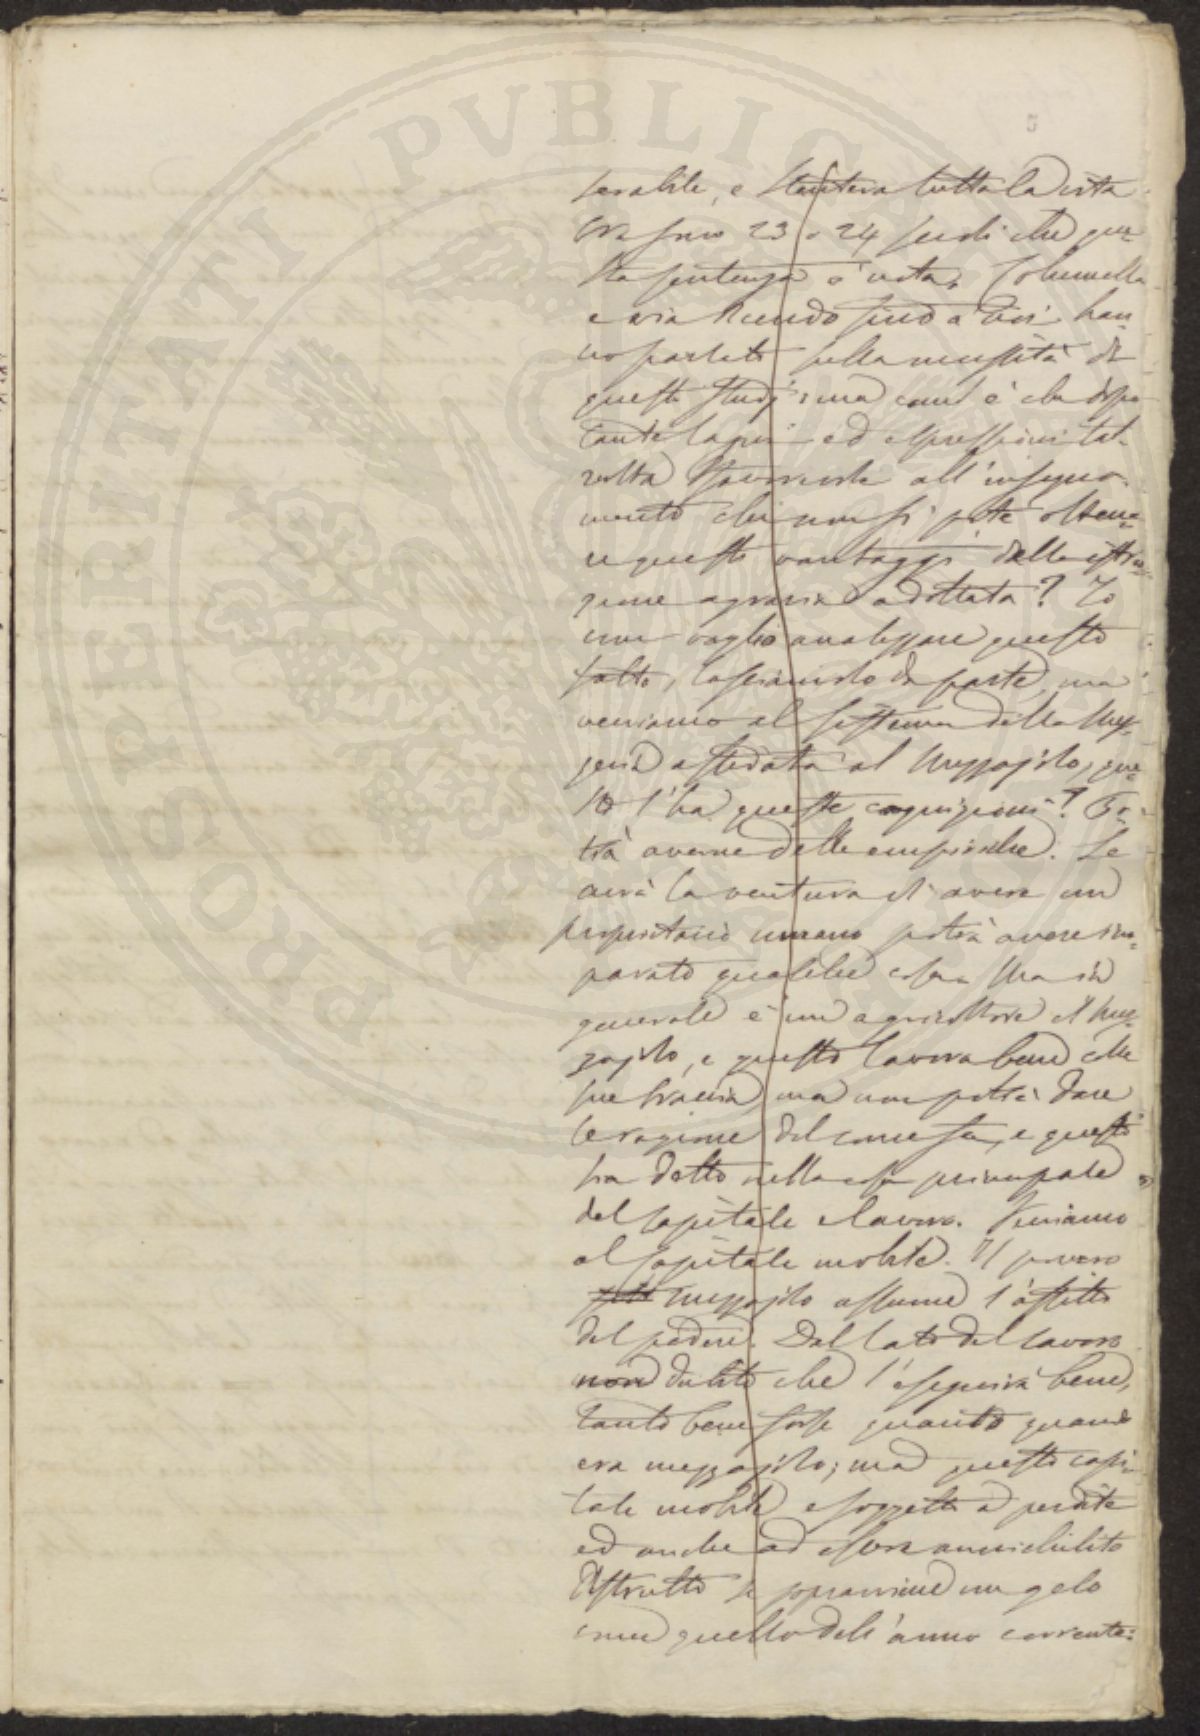 5
serabile, e stenterà tutta la vita
Ora sono 23 o 24 secoli che que=
sta sentenza è nota, Columella
e via dicendo sino a noi han=
no parlato sulla necessità di
questi studj; ma com'è che dopo
tante lagni ed espressioni tal=
volta favorevoli all'insegna=
mento che non si potè ottene=
re questi vantaggi dalla istru=
zione agraria adottata? Io
non voglio analizzare questo
fatto, lasciamolo da parte, ma
veniamo al sistema della Mez=
zeria affidata al Mezzajolo, que=
sto l'ha queste cognizioni? Po=
trà averne delle empiriche. Se
avrà la ventura di avere un
proprietario umano potrà avere im=
parato qualche cosa. Ma in
generale è un agricoltore il Mez=
zajolo, e questo lavora bene colle
sue braccia, ma non potrà dare
le ragione del come sia, e questo
ha detto nella cosa principale
del capitale e lavoro. Veniamo
al Capitale mobile. Il povero
mezzajolo assume l'affitto
del podere. Dal lato del lavoro
non dubito che l'eseguirà bene,
tanto bene forse quanto quando
era mezzajolo; ma questo capi=
tale mobile è soggetto a perdite
ed anche ad essere annichilito
distrutto se sopravviene un gelo
come quello dell'anno corrente:
PROSPERITATI PVBLICAE